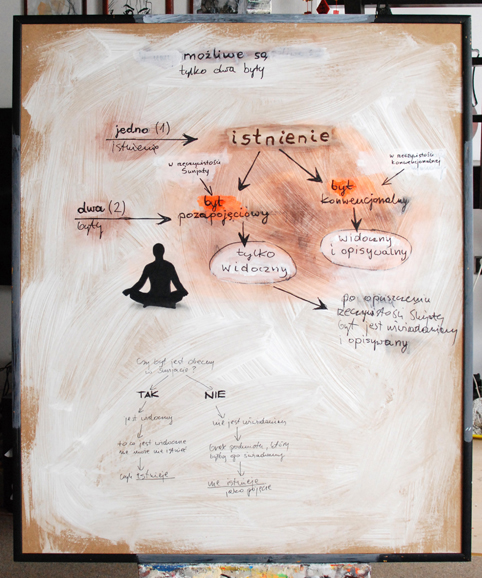 możliwe są
tylko dwa byty
jedno (1)
istnienie
istnienie
w rzeczywistości
Śunjaty
w rzeczywistości
konwencjonalnej
dwa (2)
byty
byt
pozapojęciowy
byt
konwencjonalny
tylko
widoczny
widoczny
i opisywalny
po opuszczeniu
rzeczywistości Śunjaty
byt jest uświadamiany
i opisywany
Czy byt jest obecny
w Śunjacie?
TAK
NIE
jest widoczny
to co jest widoczne
nie może nie istnieć
czyli istnieje
nie jest uświadamiany
brak podmiotu, który
byłby go świadomy
nie istnieje
jako pojęcie